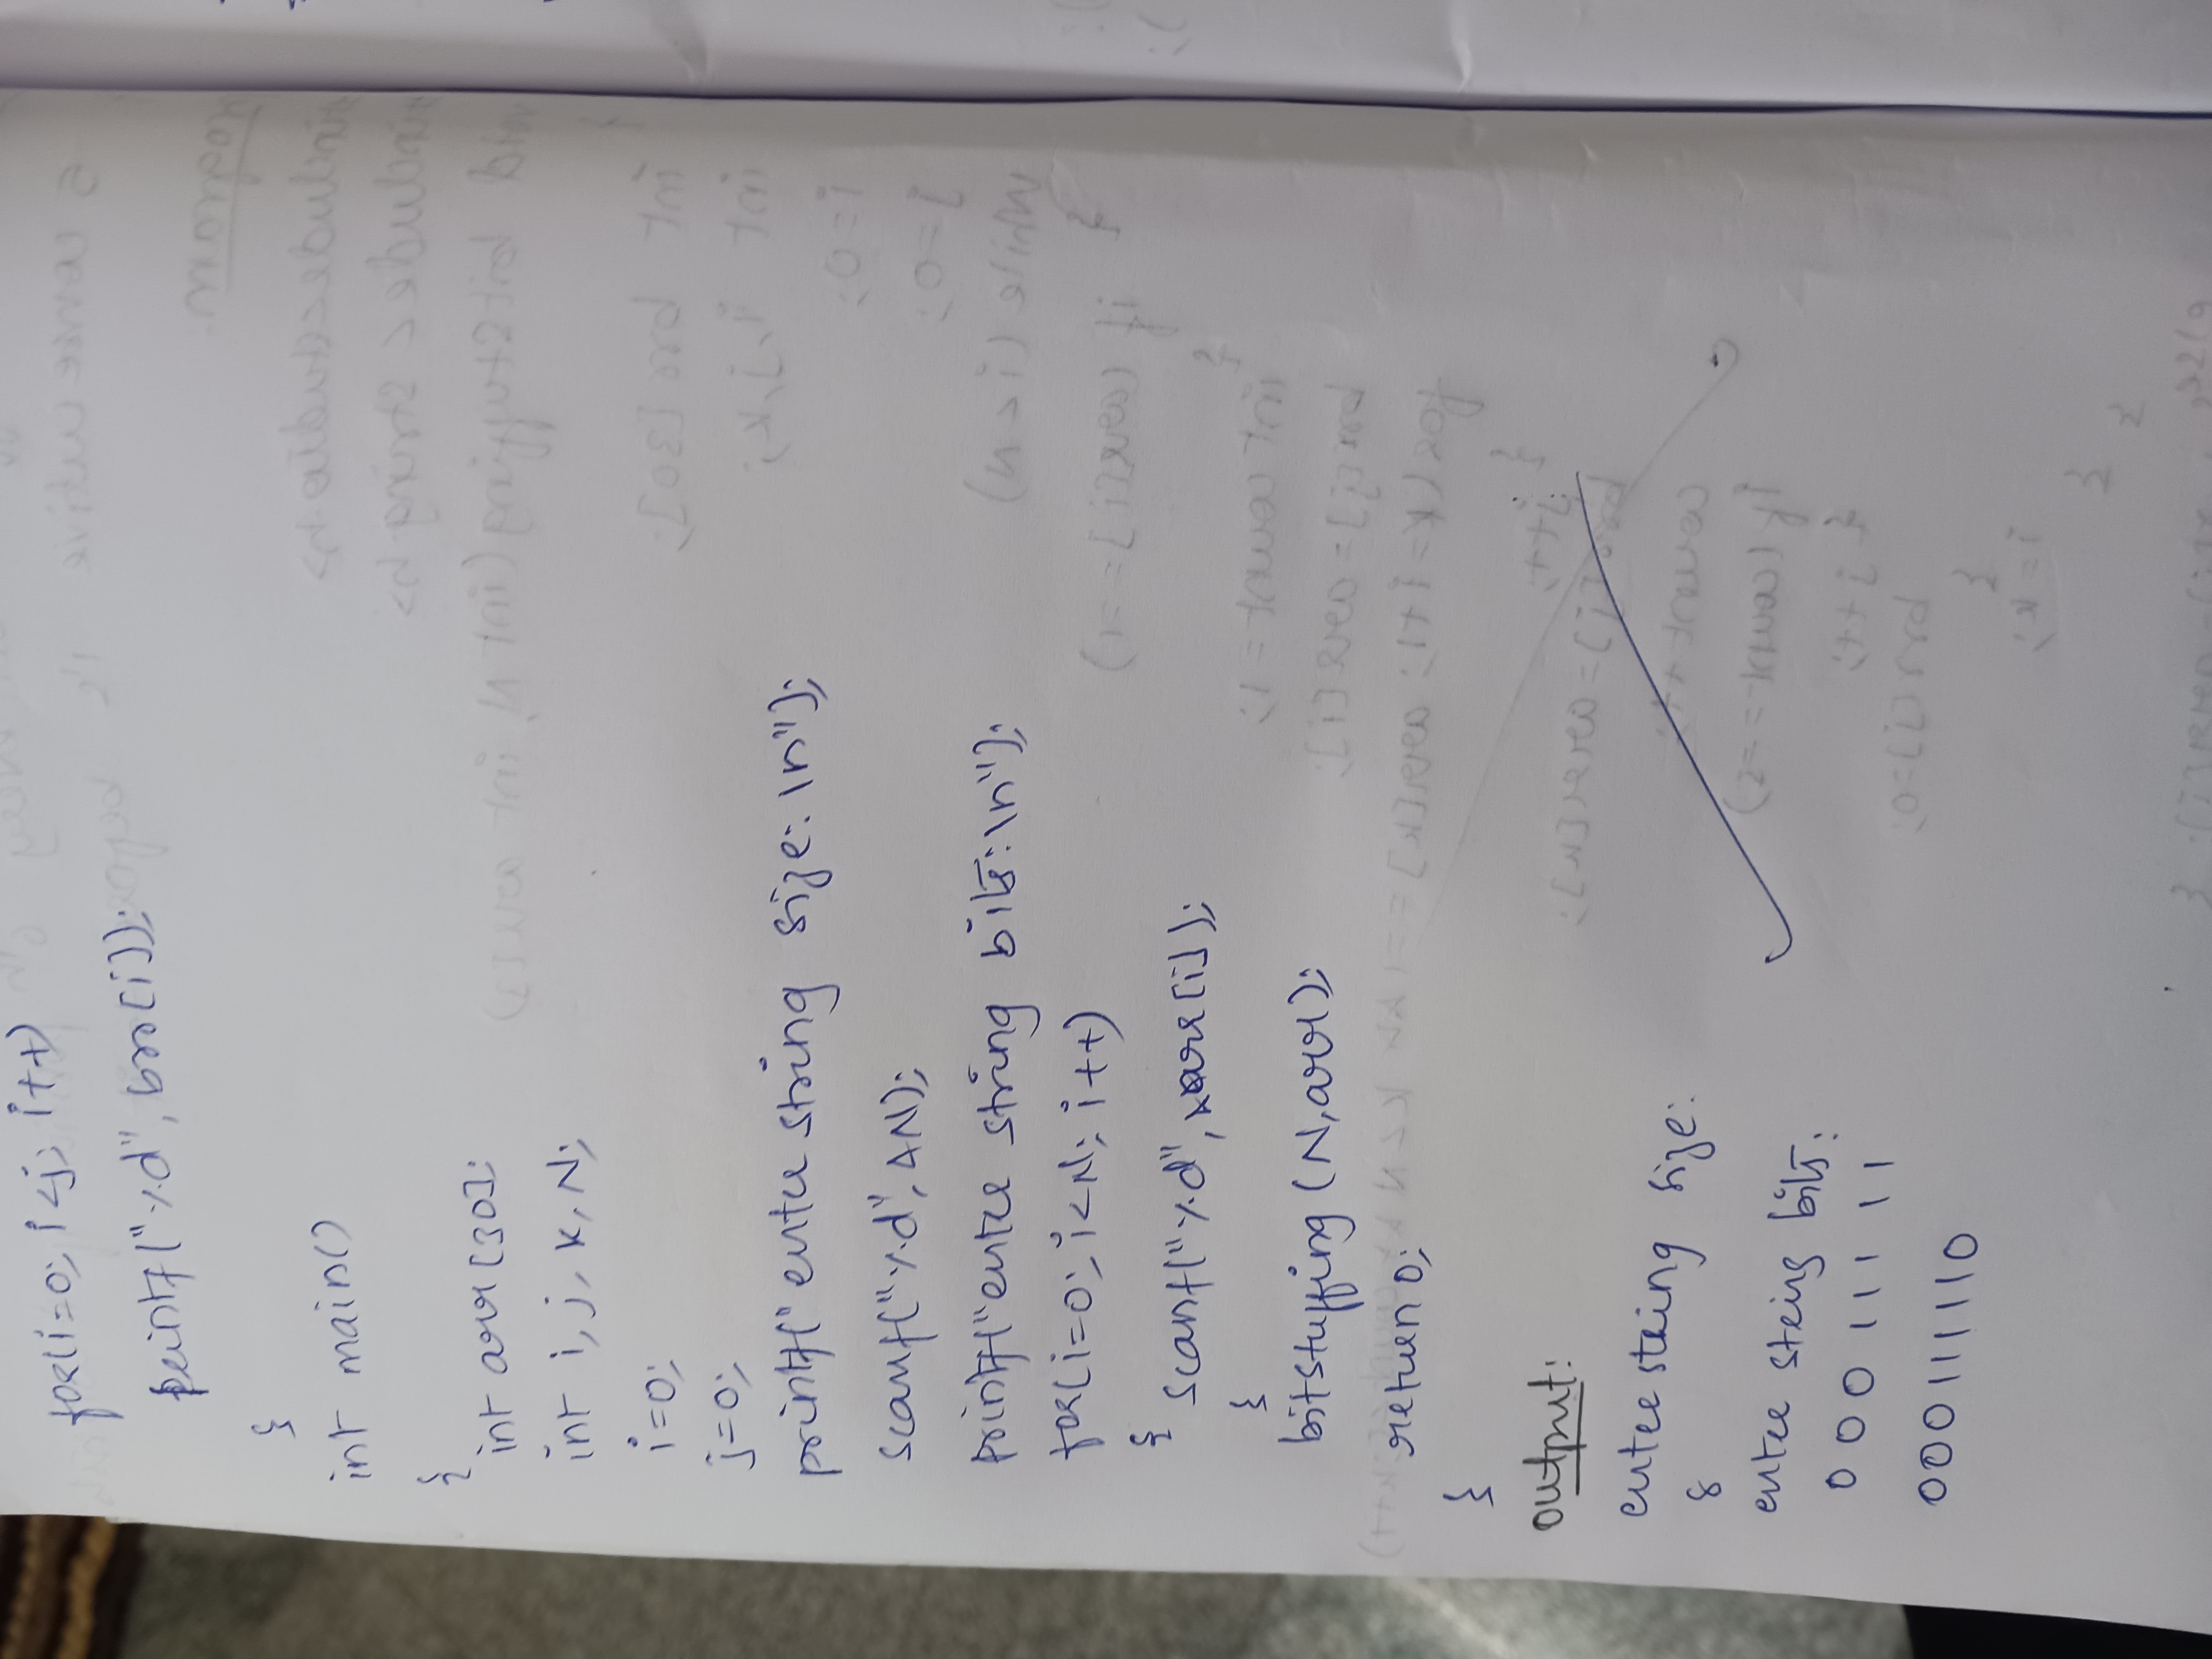 for(i=0; i<j; i++)
printf("%d", brr[i]);
}
int main()
{
int arr[30];
int i, j, k, N;
i=0;
j=0;
printf("enter string size: \n");
scanf("%d", &N);
printf("enter string bits:\n");
for(i=0; i<N; i++)
{ scanf("%d", &arr[i]);
}
bitstuffing (N,arr);
return 0;
}
output:
enter string size:
8
enter string bits:
0 0 0 1 1 1 1 1
000111110